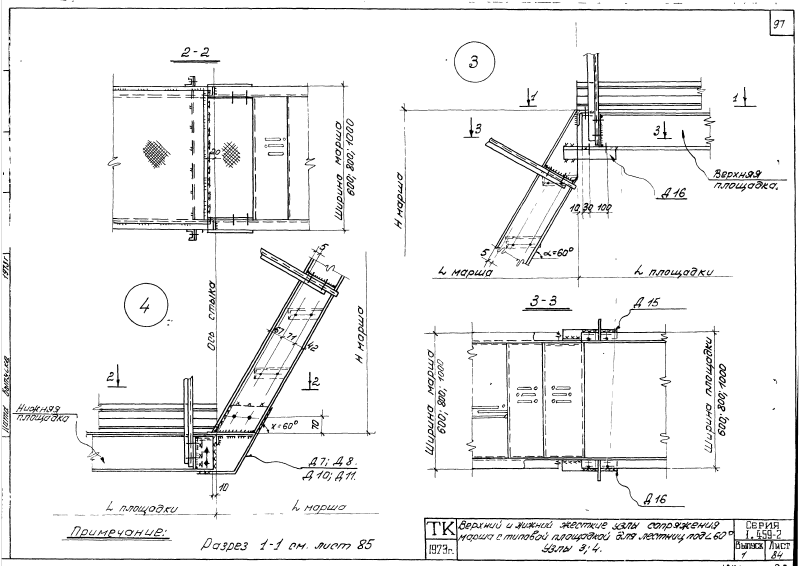 97
2-2
20
Ширина марша
600; 800; 1000
2
3
1
1
3
3
Верхняя
площадка.
Д 16
10 30 100
Н марша
5
α=60°
L марша
L площадки
4
5
Ось стыка
67 71
42
Н марша
2
2
Нижняя
площадка
α=60°
70
Д 7; Д 8.
Д 10; Д 11.
10
L площадки
L марша
3-3
Д 15
Ширина марша
600; 800; 1000
Ширина площадки
600; 800; 1000
Д 16
Примечание:
Разрез 1-1 см. лист 85
ТК
1973г.
Верхний и нижний жесткие узлы сопряжения
марша с типовой площадкой для лестниц под ∠60°
Узлы 3; 4.
Серия
1.459-2
Выпуск
1
Лист
84